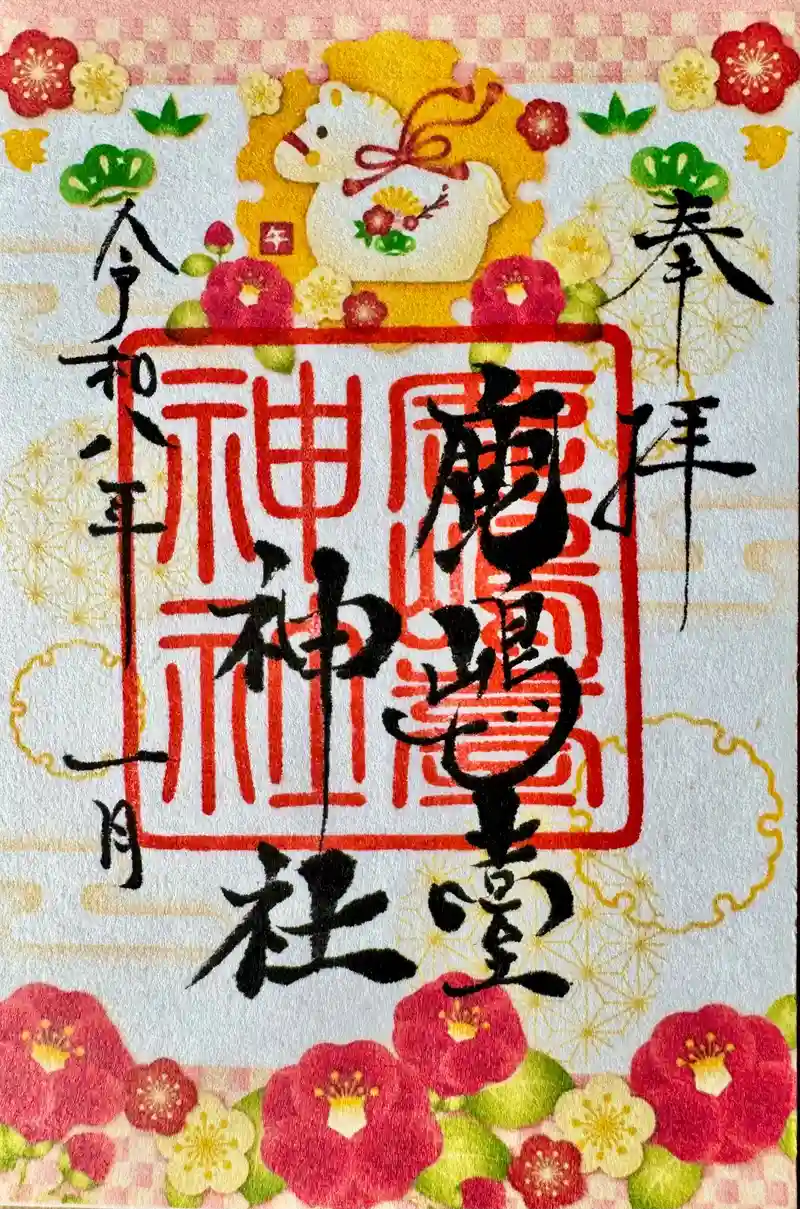 奉拝
鹿嶋臺
神社
令和八年一月
午
鹿嶋臺
神社